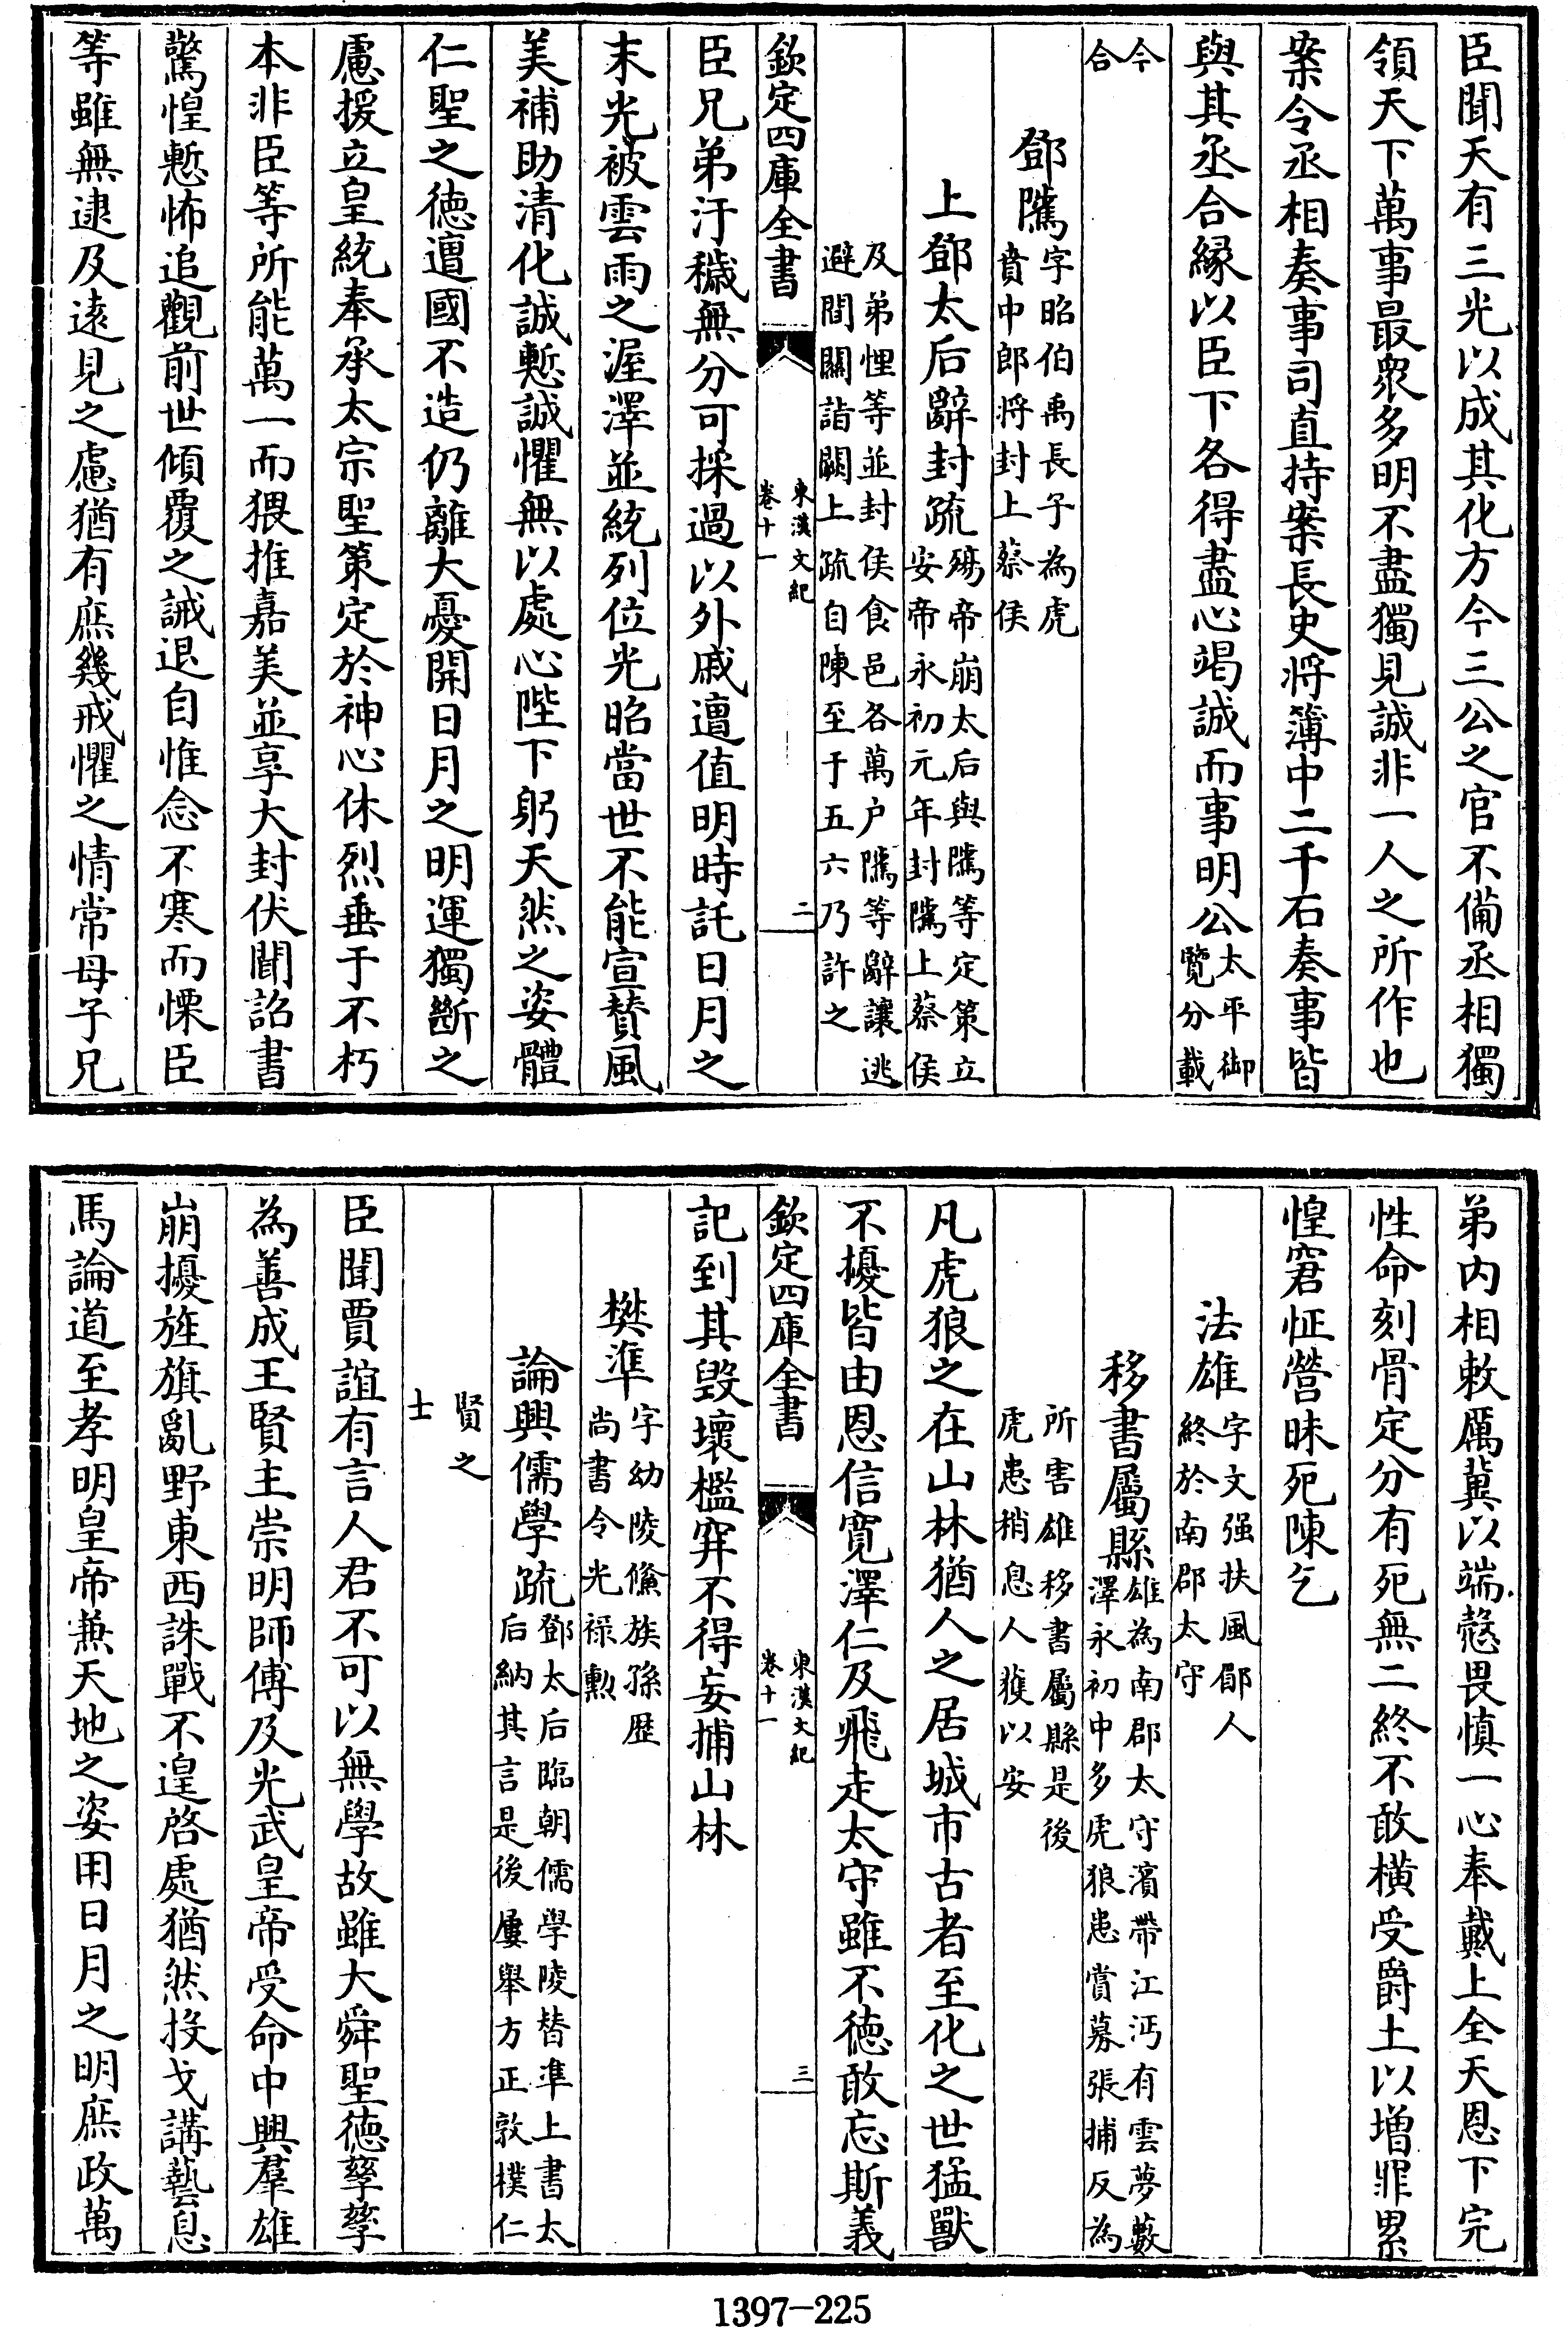 臣聞天有三光以成其化方今三公之官不備丞相獨
領天下萬事最衆多明不盡獨見誠非一人之所作也
案令丞相奏事司直持案長史將簿中二千石奏事皆
與其丞合緣以臣下各得盡心竭誠而事明公太平御覽分載
今合
鄧騭字昭伯禹長子為虎賁中郎將封上蔡侯
上鄧太后辭封疏殤帝崩太后與騭等定策立安帝永初元年封騭上蔡侯
及弟悝等並封侯食邑各萬户騭等辭讓逃避間關詣闕上疏自陳至于五六乃許之
欽定四庫全書 東漢文紀 卷十一 二
臣兄弟汙穢無分可採過以外戚遭值明時託日月之
末光被雲雨之渥澤並統列位光昭當世不能宣贊風
美補助清化誠慙誠懼無以處心陛下躬天然之姿體
仁聖之德遭國不造仍離大憂開日月之明運獨斷之
慮援立皇統奉承太宗聖策定於神心休烈垂于不朽
本非臣等所能萬一而猥推嘉美並享大封伏聞詔書
驚惶慙怖追觀前世傾覆之誡退自惟念不寒而慄臣
等雖無逮及遠見之慮猶有庶幾戒懼之情常母子兄
弟内相敕厲冀以端慤畏慎一心奉戴上全天恩下完
性命刻骨定分有死無二終不敢横受爵土以增罪累
惶窘怔營昧死陳乞
法雄字文强扶風郿人終於南郡太守
移書屬縣雄為南郡太守濱帶江沔有雲夢藪澤永初中多虎狼患賞募張捕反為
所害雄移書屬縣是後虎患稍息人獲以安
凡虎狼之在山林猶人之居城市古者至化之世猛獸
不擾皆由恩信寛澤仁及飛走太守雖不德敢忘斯義
欽定四庫全書 東漢文紀 卷十一 三
記到其毁壞檻穽不得妄捕山林
樊準字幼陵鯈族孫歴尚書令光禄勲
論興儒學疏鄧太后臨朝儒學陵替準上書太后納其言是後屢舉方正敦樸仁
賢之士
臣聞賈誼有言人君不可以無學故雖大舜聖德孳孳
為善成王賢主崇明師傅及光武皇帝受命中興羣雄
崩擾旌旗亂野東西誅戰不遑啓處猶然投戈講藝息
馬論道至孝明皇帝兼天地之姿用日月之明庶政萬
1397-225